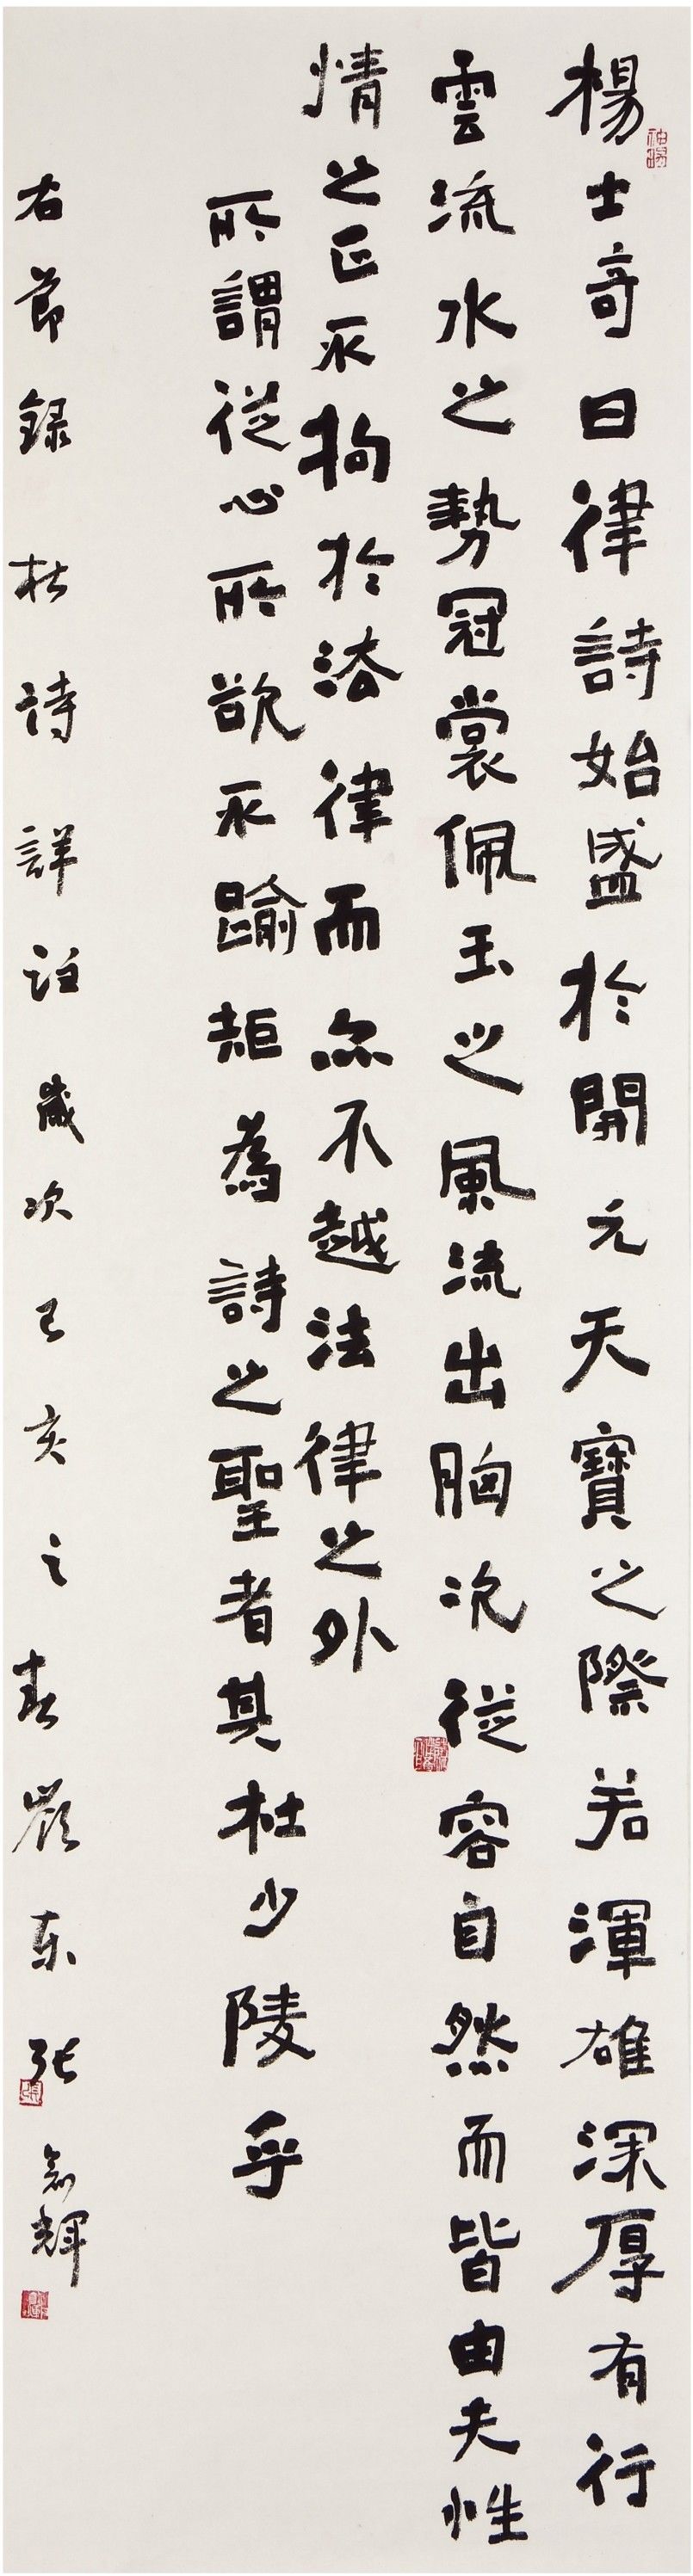 楊士奇曰律詩始盛於開元天寶之際若渾雄深厚有行
雲流水之勢冠裳佩玉之風流出胸次從容自然而皆由夫性
情之正不拘於法律而亦不越法律之外
所謂從心所欲不踰矩為詩之聖者其杜少陵乎
右節録杜詩詳註歲次己亥之春嶺东张輝